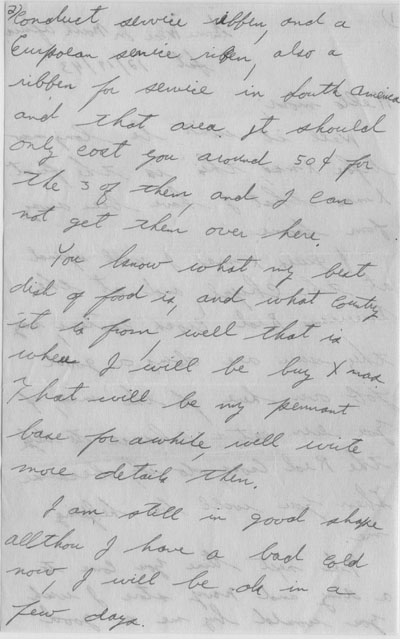 2) Conduct service ribben, and a
Europoean service riben, also a
ribben for service in South America
and that area. It should
only cost you around 50¢ for
the 3 of them, and I can
not get them over here.
You know what my best
dish of food is, and what country
it is from, well that is
where I will be buy Xmas
That will be my permant
base for awhile, will write
more details then.
I am still in good shape
allthou I have a bad cold
now, I will be ok in a
few days.